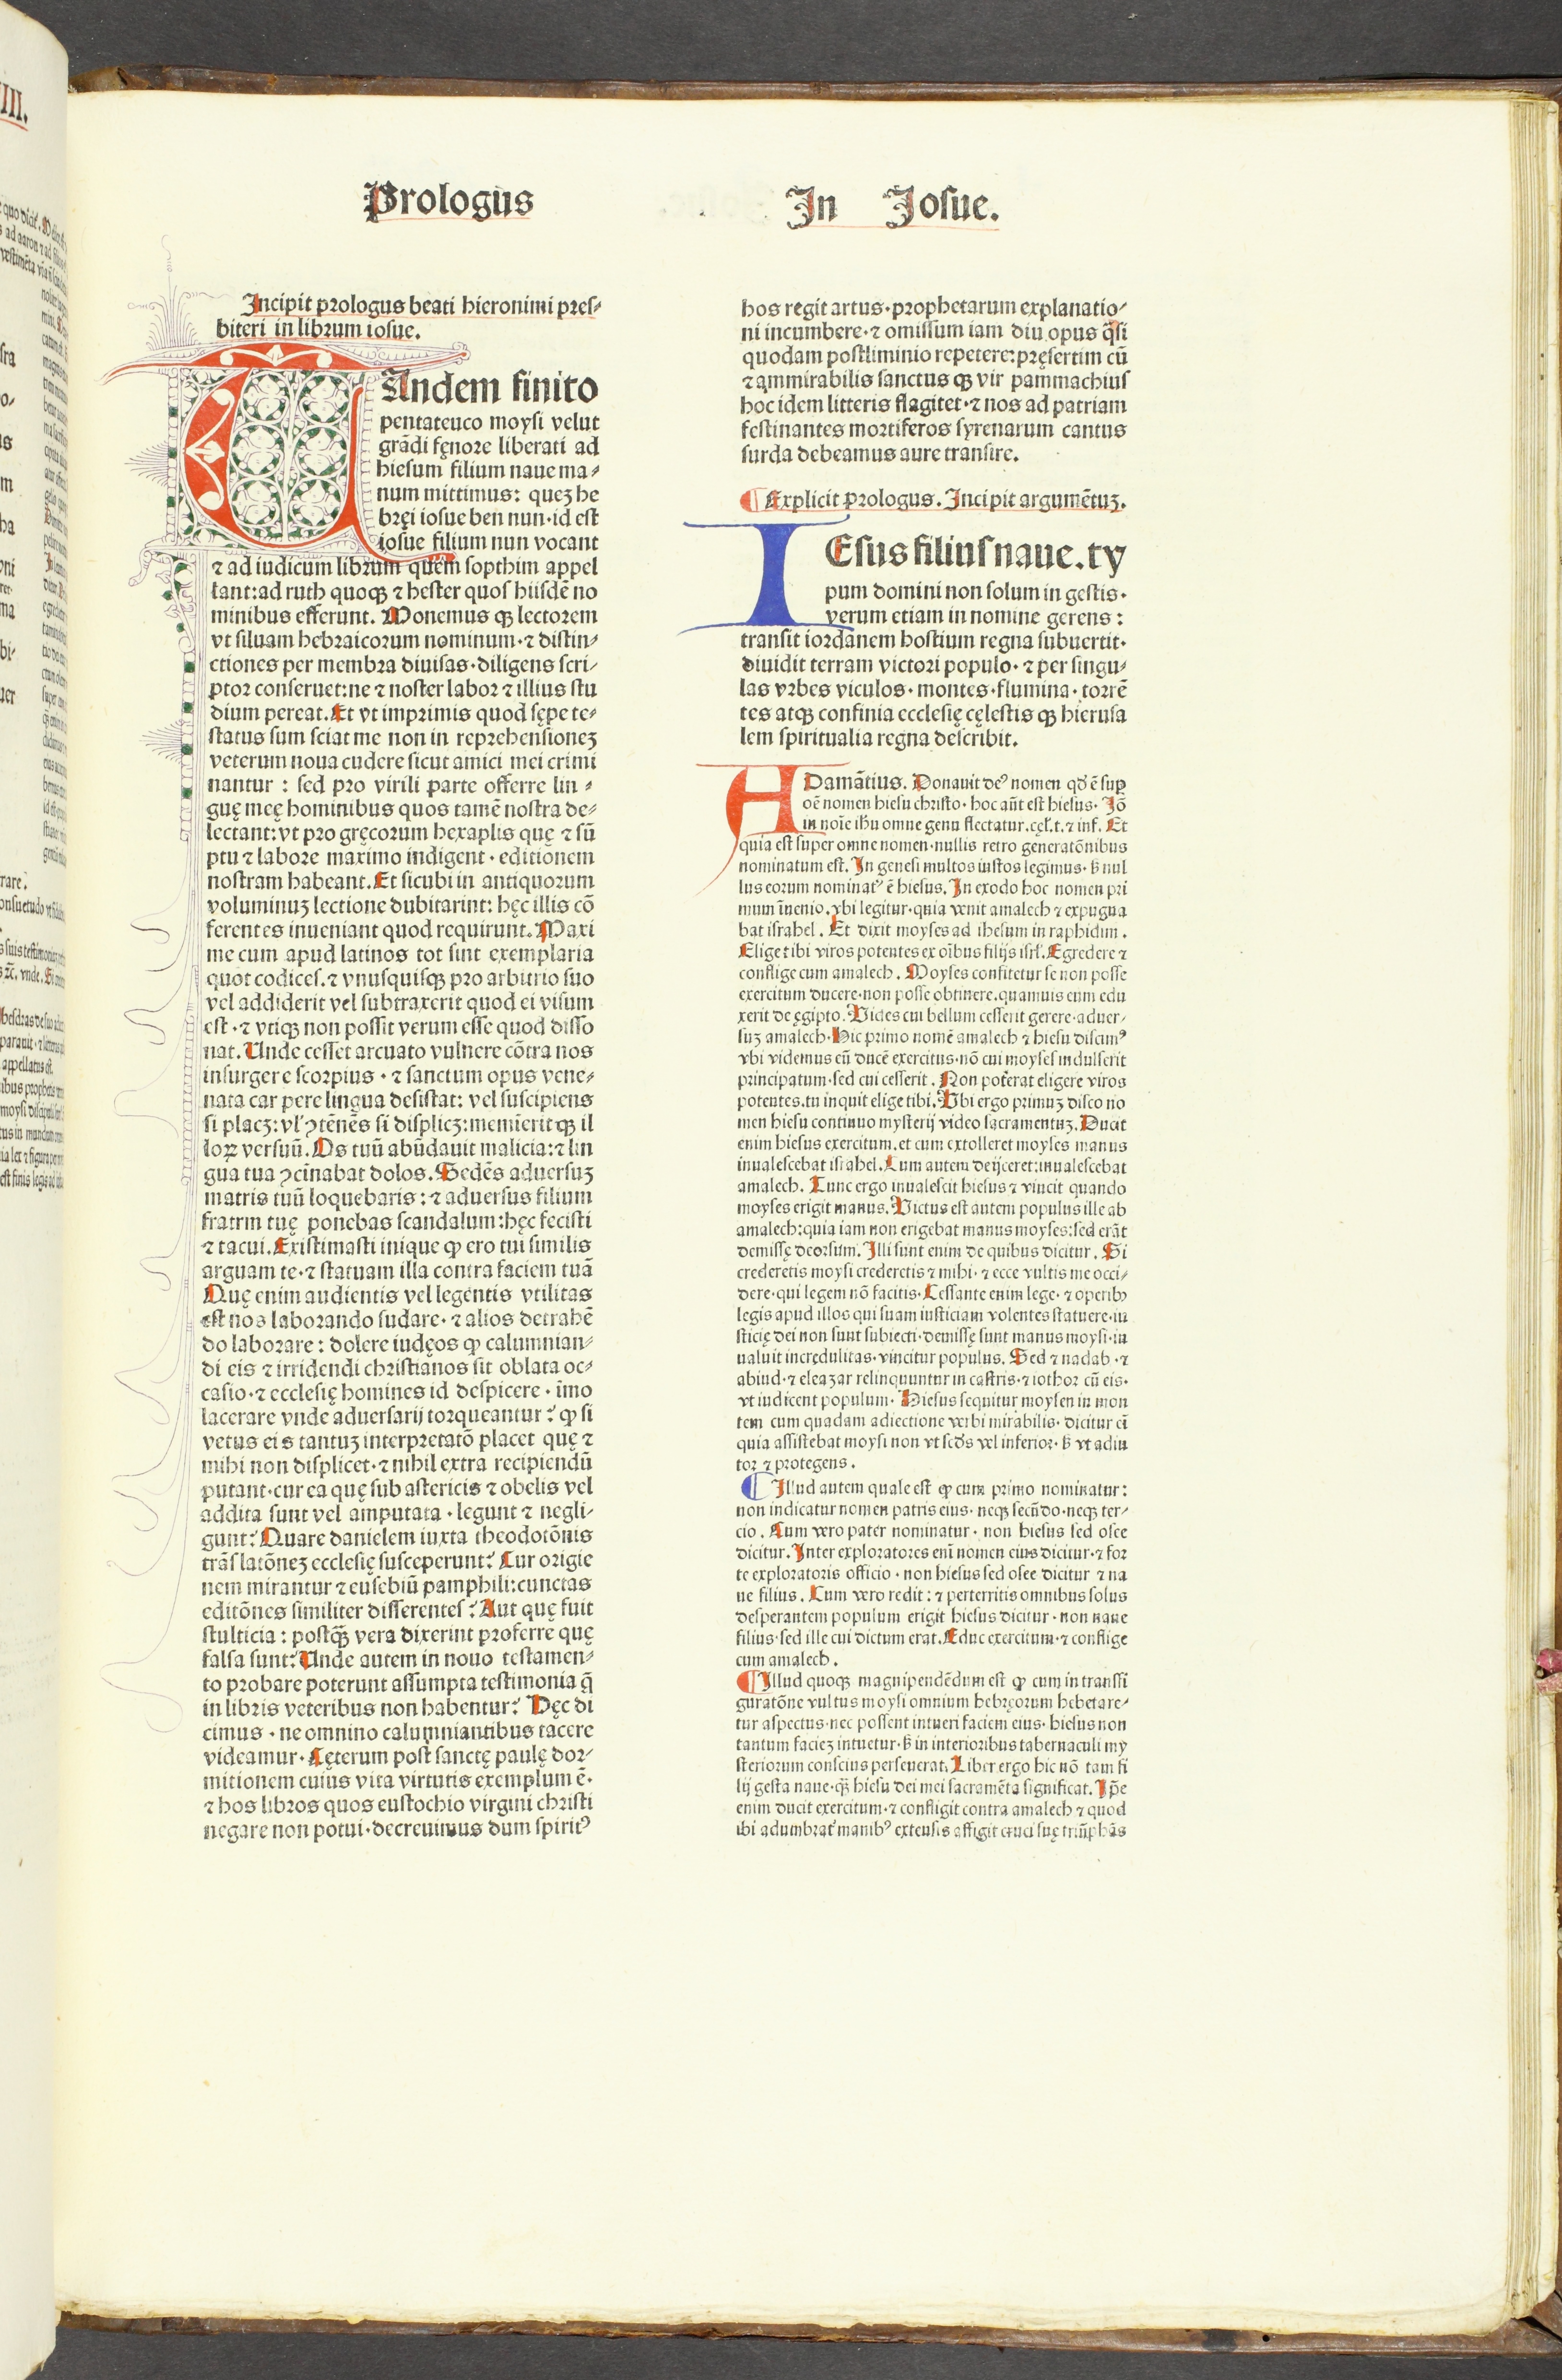 Prologus
In Josue.
Incipit prologus beati hieronimi pres⸗
biteri in librum iosue.
TAndem finito
pentateuco moysi velut
grãdi fęnore liberati ad
hiesum filium naue ma⸗
num mittimus: queʒ he
bręi iosue ben nun·id est
iosue filium nun vocant
⁊ ad iudicum librum quem sopthim appel
lant:ad ruth quoqꝫ ⁊ hester quos hiisdẽ no
minibus efferunt. Monemus qꝫ lectorem
vt siluam hebraicorum nominum·⁊ distin⸗
ctiones per membra diuisas·diligens scri⸗
ptor conseruet:ne ⁊ noster labor ⁊ illius stu
dium pereat.Et vt imprimis quod sępe te⸗
status sum sciat me non in reprehensioneʒ
veterum noua cudere sicut amici mei crimi
nantur : sed pro virili parte offerre lin ⸗
guę meę hominibus quos tamẽ nostra de⸗
lectant:vt pro gręcorum hexaplis quę ⁊ sũ
ptu ⁊ labore maximo indigent · editionem
nostram habeant.Et sicubi in antiquorum
voluminuʒ lectione dubitarint: hęc illis cõ
ferentes inueniant quod requirunt.Maxi
me cum apud latinos tot sint exemplaria
quot codices.⁊ vnusquisqꝫ pro arbitrio suo
vel addiderit vel subtraxerit quod ei visum
est·⁊ vtiqꝫ non possit verum esse quod disso
nat.Unde cesset arcuato vulnere cõtra nos
insurgere scorpius · ⁊ sanctum opus vene⸗
nata car pere lingua desistat: vel suscipiens
si placʒ: vl' ꝯtẽnẽs si displicʒ:memĩerit qꝫ il
loꝝ versuũ.Os tuũ abũdauit malicia:⁊ lin
gua tua ꝯcĩnabat dolos.Sedẽs aduersuʒ
matris tuũ loquebaris:⁊ aduersus filium
fratrm tuę ponebas scandalum:hęc fecisti
⁊ tacui.Existimasti inique ꝙ ero tui similis
arguam te·⁊ statuam illa contra faciem tuã
Quę enim audientis vel legentis vtilitas
est nos laborando sudare·⁊ alios detrahẽ
do laborare: dolere iudęos ꝙ calumnian⸗
di eis ⁊ irridendi christianos sit oblata oc⸗
casio·⁊ ecclesię homines id despicere · ĩmo
lacerare vnde aduersarij torqueantur? ꝙ si
vetus eis tantuʒ interpretatõ placet quę ⁊
mihi non displicet·⁊ nihil extra recipiendũ
putant·cur ea quę sub astericis ⁊ obelis vel
addita sunt vel amputata·legunt ⁊ negli⸗
gunt? Quare danielem iuxta theodotõnis
trãslatõneʒ ecclesię susceperunt? Cur origie
nem mirantur ⁊ eusebiũ pamphili:cunctas
editõnes similiter differentes? Aut quę fuit
stulticia : postꝙ̃ vera dixerint proferre quę
falsa sunt? Unde autem in nouo testamen⸗
to probare poterunt assumpta testimonia q̃
in libris veteribus non habentur? Hęc di
cimus · ne omnino calumniantibus tacere
videamur·Cęterum post sanctę paulę dor⸗
mitionem cuius vita virtutis exemplum ẽ·
⁊ hos libros quos eustochio virgini christi
negare non potui·decreuimus dum spirit⁹
hos regit artus·prophetarum explanatio⸗
ni incumbere·⁊ omissum iam diu opus q̃si
quodam postliminio repetere:pręsertim cũ
⁊ ammirabilis sanctus qꝫ vir pammachius
hoc idem litteris flagitet·⁊ nos ad patriam
festinantes mortiferos syrenarum cantus
surda debeamus aure transire.
¶Explicit prologus.Incipit argumẽtuʒ.
IEsus filius naue.ty
pum domini non solum in gestis·
verum etiam in nomine gerens :
transit iordanem hostium regna subuertit·
diuidit terram victori populo·⁊ per singu⸗
las vrbes viculos·montes·flumina·torrẽ
tes atqꝫ confinia ecclesię cęlestis qꝫ hierusa
lem spiritualia regna describit.
ADamãtius. Donauit de⁹ nomen qd̕ ẽ suꝑ
oẽ nomen hiesu christo·hoc aũt est hiesus·Iõ
in noĩe ihu omne genu flectatur.cęl'.t.⁊ inf. Et
quia est super omne nomen·nullis retro generatõnibus
nominatum est. In genesi multos iustos legimus·ß nul
lus eorum nominat⁹ ẽ hiesus. In exodo hoc nomen pri
mum ĩnenio.vbi legitur·quia venit amalech ⁊ expugna
bat israhel. Et dixit moyses ad ihesum in raphidim.
Elige tibi viros potentes ex oĩbus filijs isrl'.Egredere ⁊
conflige cum amalech. Moyses confitetur se non posse
exercitum ducere·non posse obtinere.quamuis eum edu
xerit de ęgipto. Uides cui bellum cesserit gerere·aduer⸗
suʒ amalech·Hic primo nomẽ amalech ⁊ hiesu discim⁹
vbi videmus eũ ducẽ exercitus·nõ cui moyses indulserit
principatum·sed cui cesserit. Non poterat eligere viros
potentes.tu inquit elige tibi.Ubi ergo primuʒ disco no
men hiesu continuo mysterij video sacramentuʒ.Ducit
enim hiesus exercitum.et cum extolleret moyses manus
inualescebat israhel.Cum autem deijceret:inualescebat
amalech. Tunc ergo inualescit hiesus ⁊ vincit quando
moyses erigit manus. Uictus est autem populus ille ab
amalech:quia iam non erigebat manus moyses:sed erãt
demissę deorsum. Illi sunt enim de quibus dicitur. Si
crederetis moysi crederetis ⁊ mihi·⁊ ecce vultis me occi⸗
dere·qui legem nõ facitis·Cessante enim lege·⁊ operibꝫ
legis apud illos qui suam iusticiam volentes statuere·iu
sticię dei non sunt subiecti·demissę sunt manus moysi·in
ualuit incredulitas·vincitur populus. Sed ⁊ nadab·⁊
abiud·⁊ eleazar relinquuntur in castris·⁊ iothor cũ eis·
vt iudicent populum· Hiesus sequitur moysen in mon
tem cum quadam adiectione verbi mirabilis· dicitur eĩ
quia assistebat moysi non vt scd̕s vel inferior·ß vt adiu
tor ⁊ protegens.
¶Illud autem quale est ꝙ cum primo nominatur:
non indicatur nomen patris eius· neqꝫ secũdo·neqꝫ ter⸗
cio. Cum vero pater nominatur· non hiesus sed osee
dicitur. Inter exploratores enĩ nomen eius dicitur·⁊ for
te exploratoris officio·non hiesus sed osee dicitur ⁊ na
ue filius. Cum vero redit: ⁊ perterritis omnibus solus
desperantem populum erigit hiesus dicitur·non naue
filius·sed ille cui dictum erat. Educ exercitum·⁊ conflige
cum amalech.
¶Illud quoqꝫ magnipendẽdum est ꝙ cum in transfi
guratõne vultus moysi omnium hebręorum hebetare⸗
tur aspectus·nec possent intueri faciem eius·hiesus non
tantum facieʒ intuetur·ß in interioribus tabernaculi my
steriorum conscius perseuerat.Liber ergo hic nõ tam fi
lij gesta naue·q̃ꝫ hiesu dei mei sacramẽta significat. Ip̃e
enim ducit exercitum·⁊ confligit contra amalech ⁊ quod
ibi adumbrat' manib⁹ extensis affigit cruci suę triũphãs